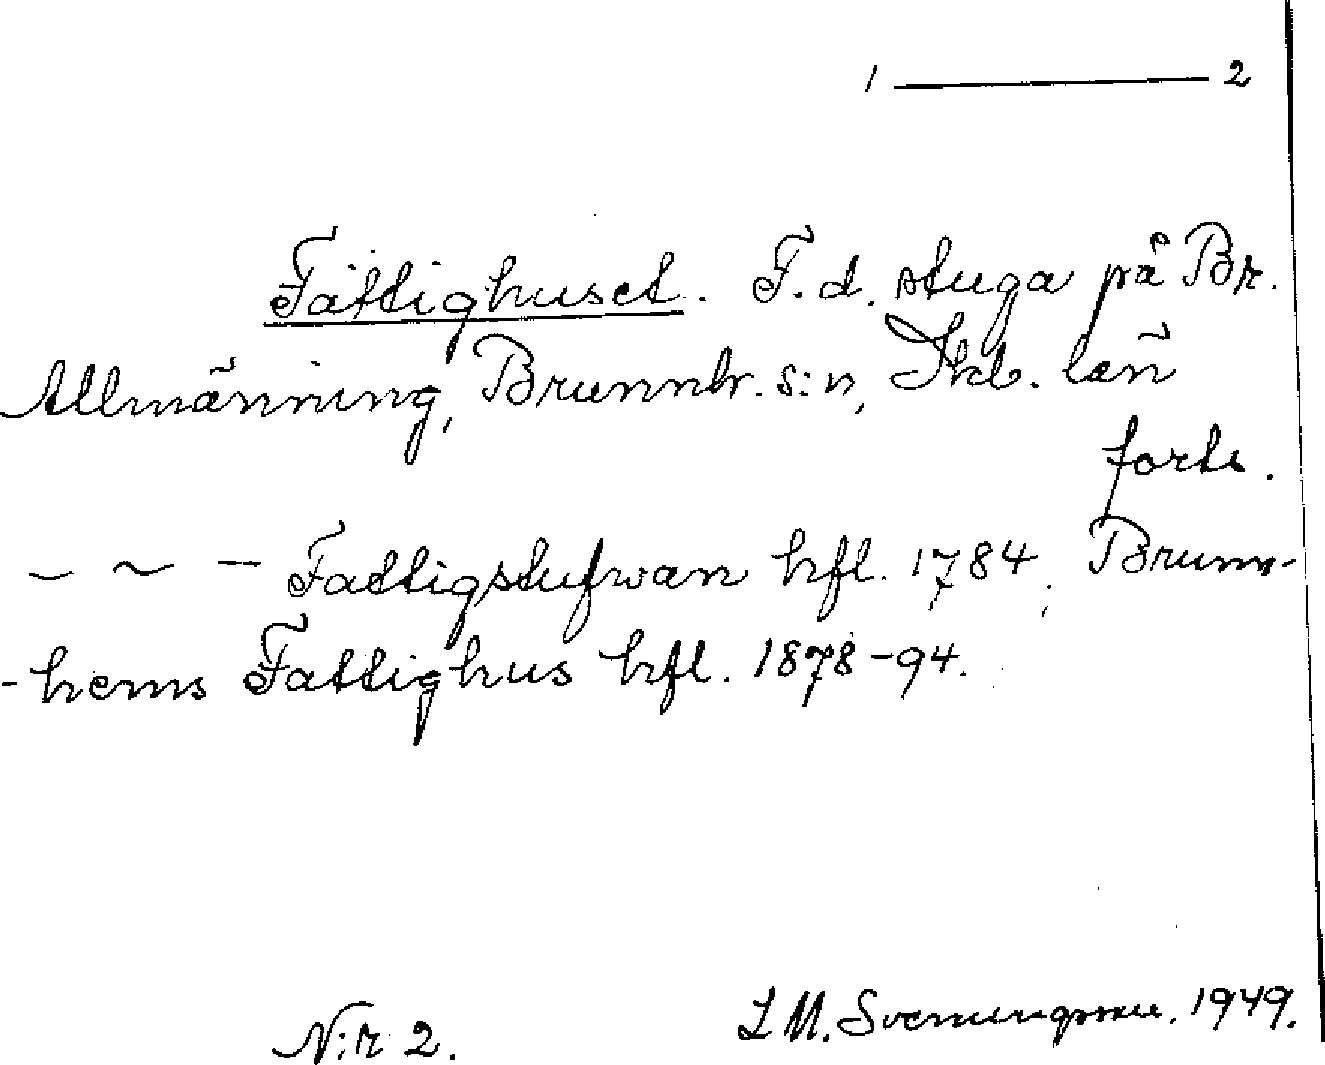 1 ——— 2
Fattighuset. F.d. stuga på Br.
Allmänning, Brunnh. s:n, Skb. län
forts.
– ~ – Fattigstufwan hfl. 1784, Brunn-
-hems Fattighus hfl. 1878-94.
N:r 2. L M. Svenungsson. 1949.